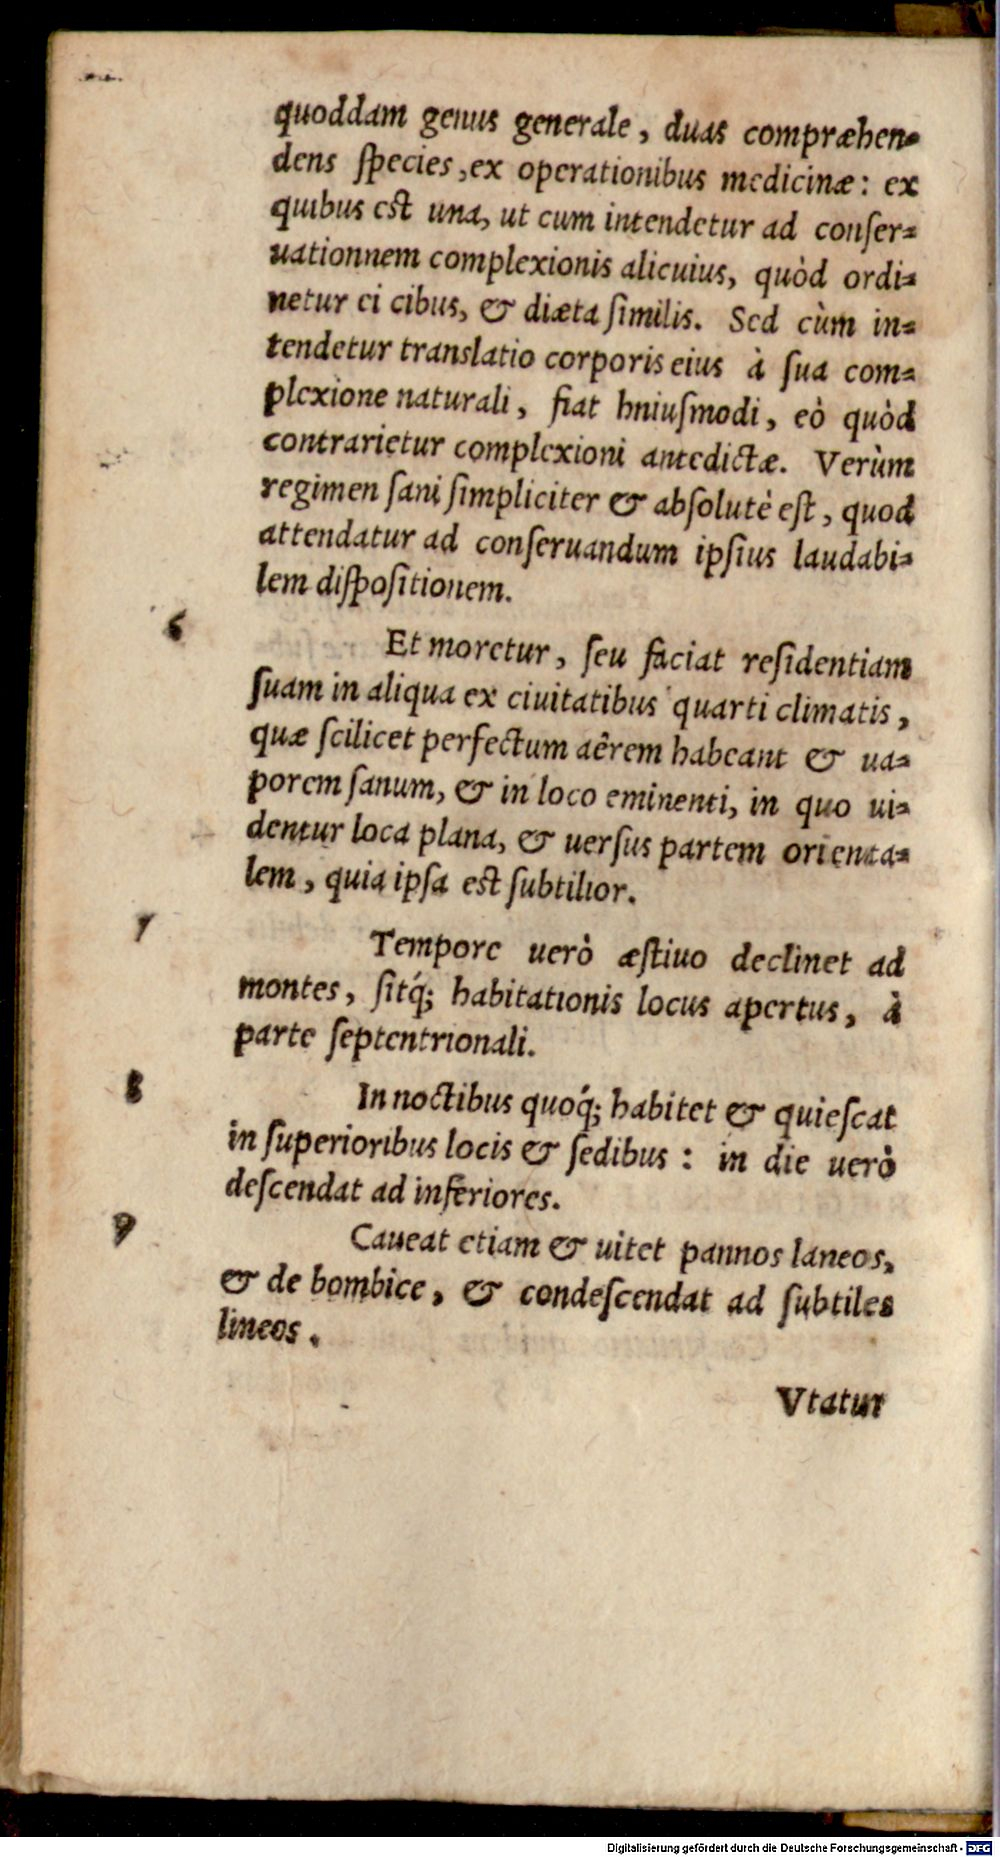 quoddam genus generale, duas compræhen=
dens species, ex operationibus medicinæ: ex
quibus est una, ut cum intendetur ad conser=
uationnem complexionis alicuius, quòd ordi=
netur ei cibus, & diæta similis. Sed cùm in=
tendetur translatio corporis eius à sua com=
plexione naturali, fiat hniusmodi, eò quòd
contrarietur complexioni antedictæ. Verùm
regimen sani simpliciter & absolutè est, quod
attendatur ad conseruandum ipsius laudabi=
lem dispositionem.
6 Et moretur, seu faciat residentiam
suam in aliqua ex ciuitatibus quarti climatis,
quæ scilicet perfectum aêrem habeant & ua=
porem sanum, & in loco eminenti, in quo ui=
dentur loca plana, & uersus partem orienta=
lem, quia ipsa est subtilior.
7 Tempore uerò æstiuo declinet ad
montes, sitq́; habitationis locus apertus, à
parte septentrionali.
8 In noctibus quoq́; habitet & quiescat
in superioribus locis & sedibus: in die uerò
descendat ad inferiores.
9 Caueat etiam & uitet pannos laneos,
& de bombice, & condescendat ad subtiles
lineos.
Vtatur
Digitalisierung gefördert durch die Deutsche Forschungsgemeinschaft - DFG